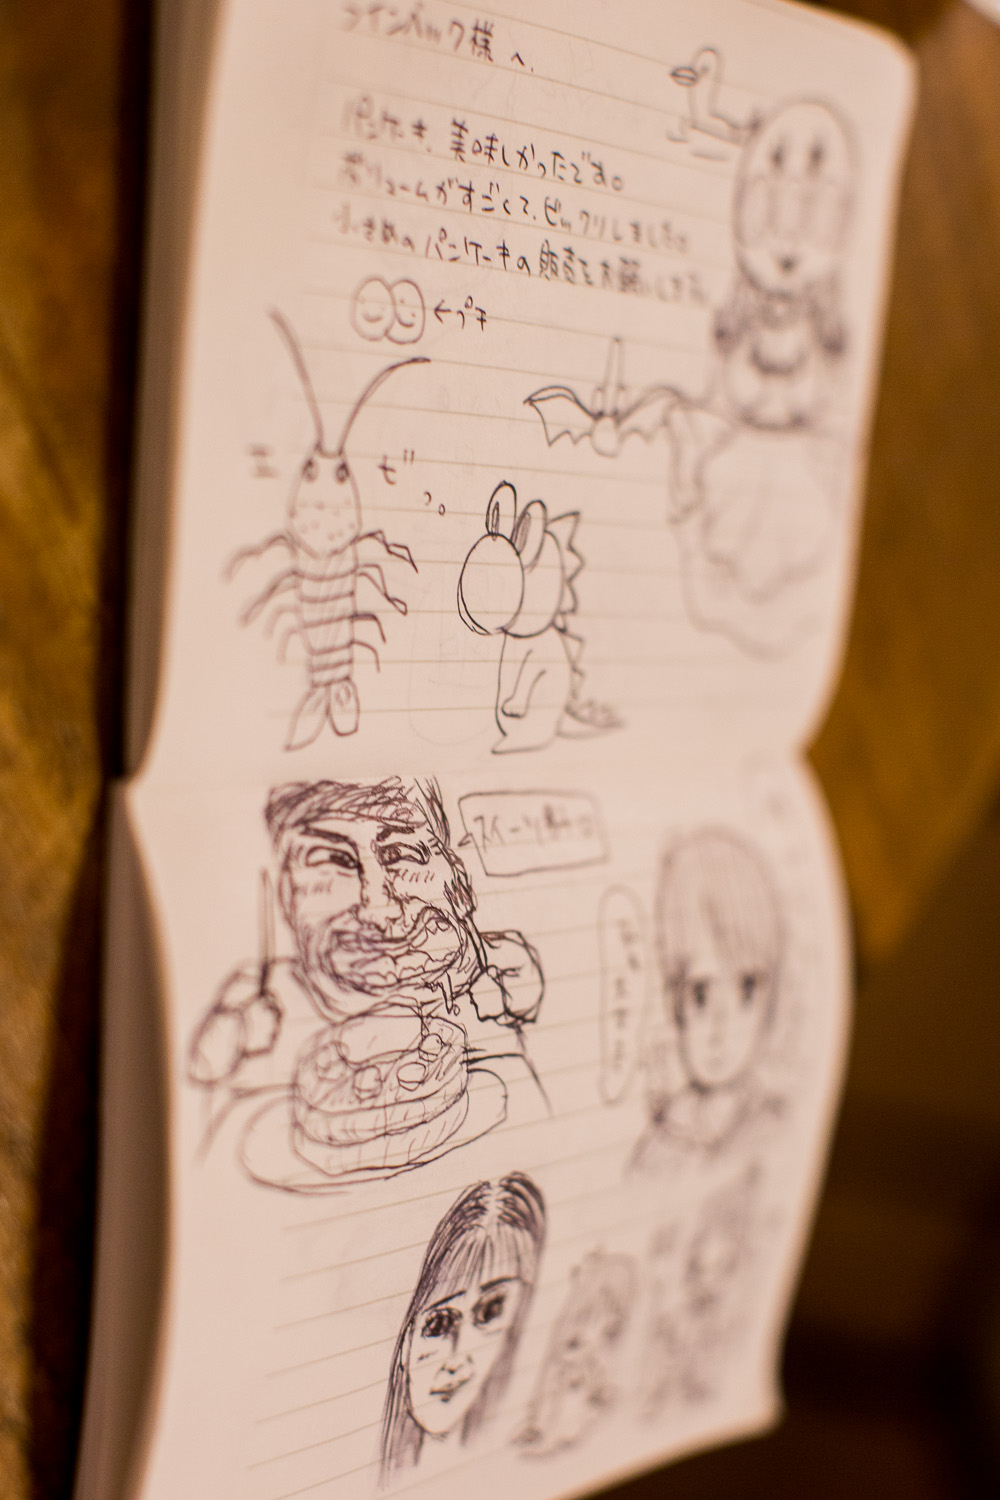 ラインバック様へ、
パンケーキ、美味しかったです。
ボリュームがすごくて、ビックリしました。
小さめのパンケーキの販売をお願いします。
←プチ
エビっ。
スイーツ